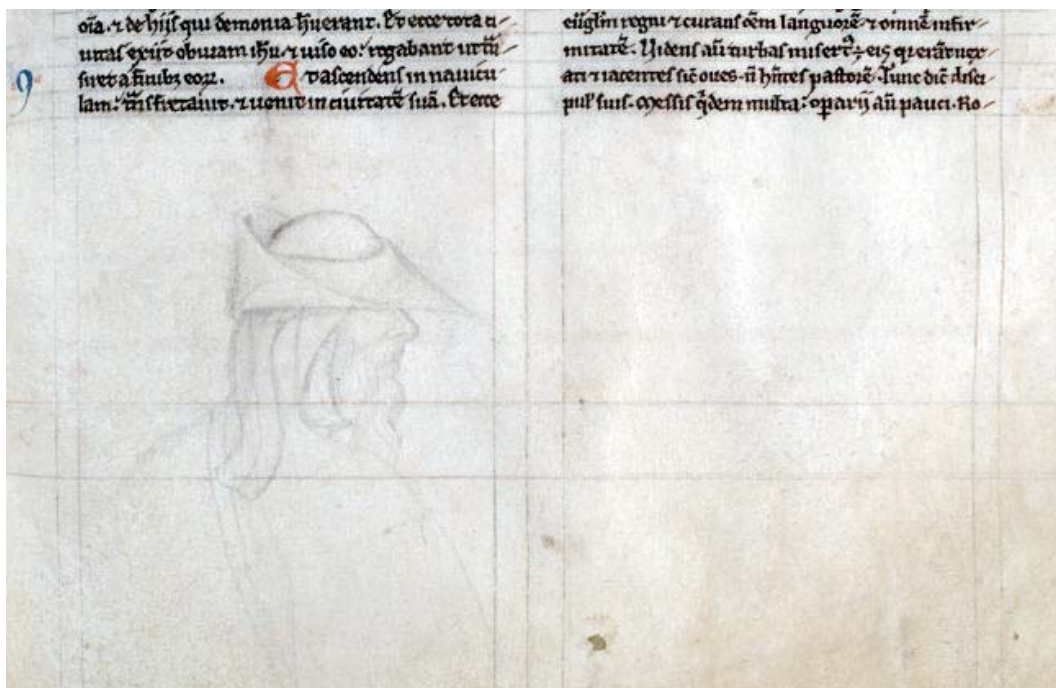 oīa. ⁊ de hijs qui demonia h̄uerant. Et ecce tota ci/
uitas exijt obuiam ih̄u. ⁊ uiso eo: rogabant ut t̄n/
siret a finibꝫ eoꝝ. Et ascendens in nauicu/
lam: t̄nsfretauit. ⁊ uenit in ciuitatē suā. Et ecce
eūgl̄m regni ⁊ curans oēm languorē ⁊ omnē infir/
mitatē. Uidens aū turbas misertꝰ ÷ eis q erāt uex/
ati ⁊ iacentes sic̄ oues. n̄ hn̄tes pastorē. Tunc dic̄ disci/
pul' suis. Messis q̇dem multa: oꝑarij aū pauci. Ro/